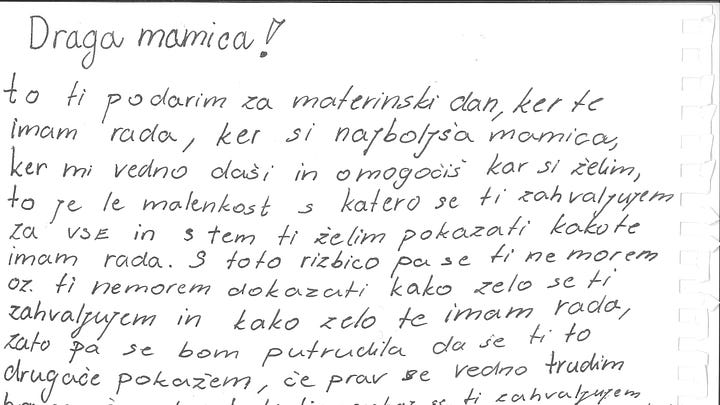 Draga mamica!
to ti podarim za materinski dan, ker te
imam rada, ker si najboljša mamica,
ker mi vedno daši in omogočiš kar si želim,
to je le malenkost s katero se ti zahvaljujem
za VSE in s tem ti želim pokazati kako te
imam rada. S toto rizbico pa se ti ne morem
oz. ti nemorem dokazati kako zelo se ti
zahvaljujem in kako zelo te imam rada,
zato pa se bom putrudila da še ti to
drugače pokažem, če prav se vedno trudim
ti zahvaljujem,